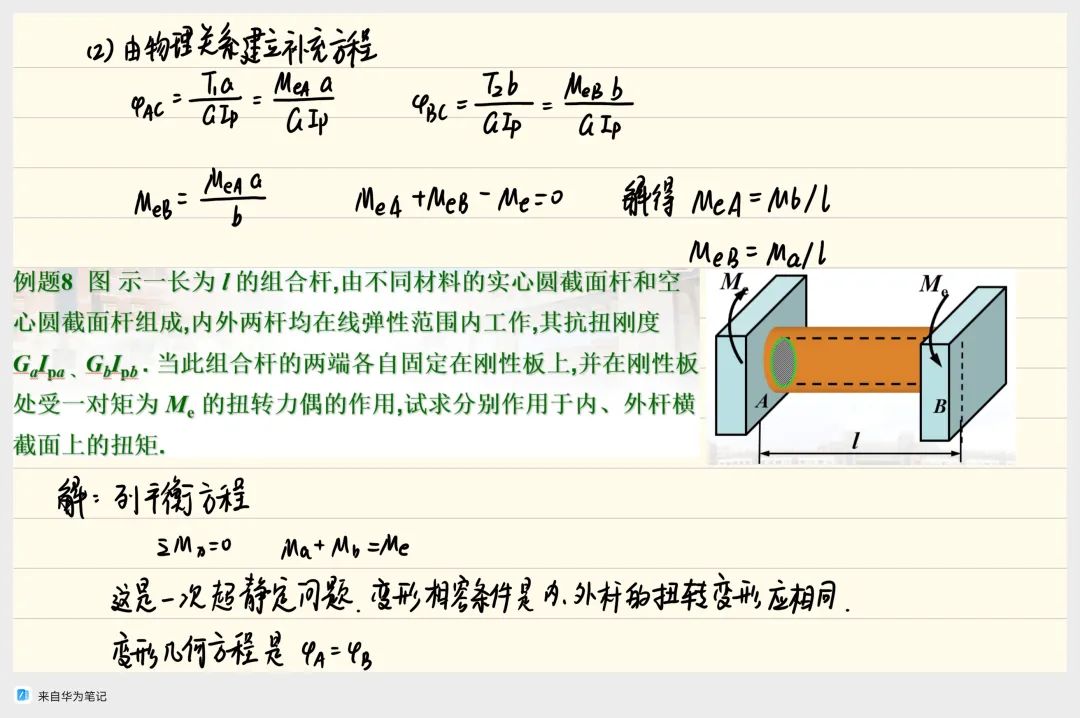 (2) 由物理关系建立补充方程
φAC = T₁a/GIp = MeA a/GIp φBC = T₂b/GIp = MeB b/GIp
MeB = MeA a/b MeA + MeB - Me = 0 解得 MeA = Mb/l
MeB = Ma/l
例题8 图 示一长为 l 的组合杆,由不同材料的实心圆截面杆和空
心圆截面杆组成,内外两杆均在线弹性范围内工作,其抗扭刚度
GaIpa、GbIpb. 当此组合杆的两端各自固定在刚性板上,并在刚性板
处受一对矩为 Me 的扭转力偶的作用,试求分别作用于内、外杆横
截面上的扭矩.
Me Me
A B
l
解: 列平衡方程
ΣMx=0 Ma + Mb = Me
这是一次超静定问题. 变形相容条件是内、外杆的扭转变形应相同.
变形几何方程是 φA = φB
来自华为笔记